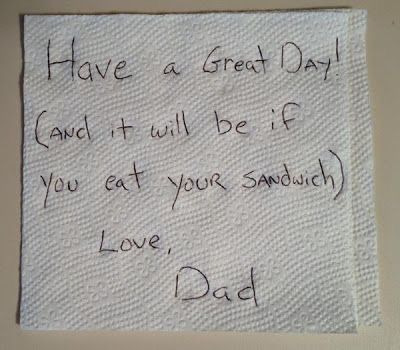 Have a Great Day!
(and it will be if
you eat your sandwich)
Love,
Dad